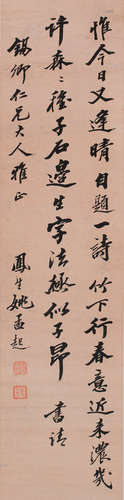 惟今日又逢晴自題一詩竹下行春意近来濃幾
许森森稚子石邊生字法極似子昂 書請
錫卿仁兄大人雅正
鳳生姚孟起